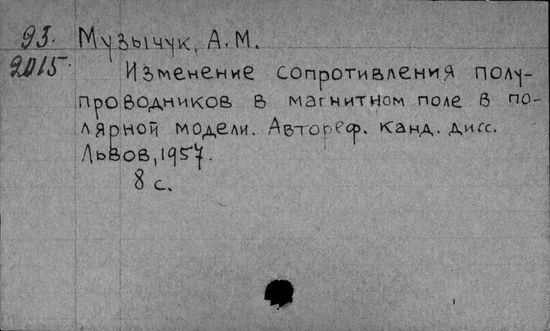 93. Музычук, А.М.
2015. Изменение сопротивления полу-
проводников в магнитном поле в по-
лярной модели. Автореф. канд. дисс.
Львов, 1957.
8 с.